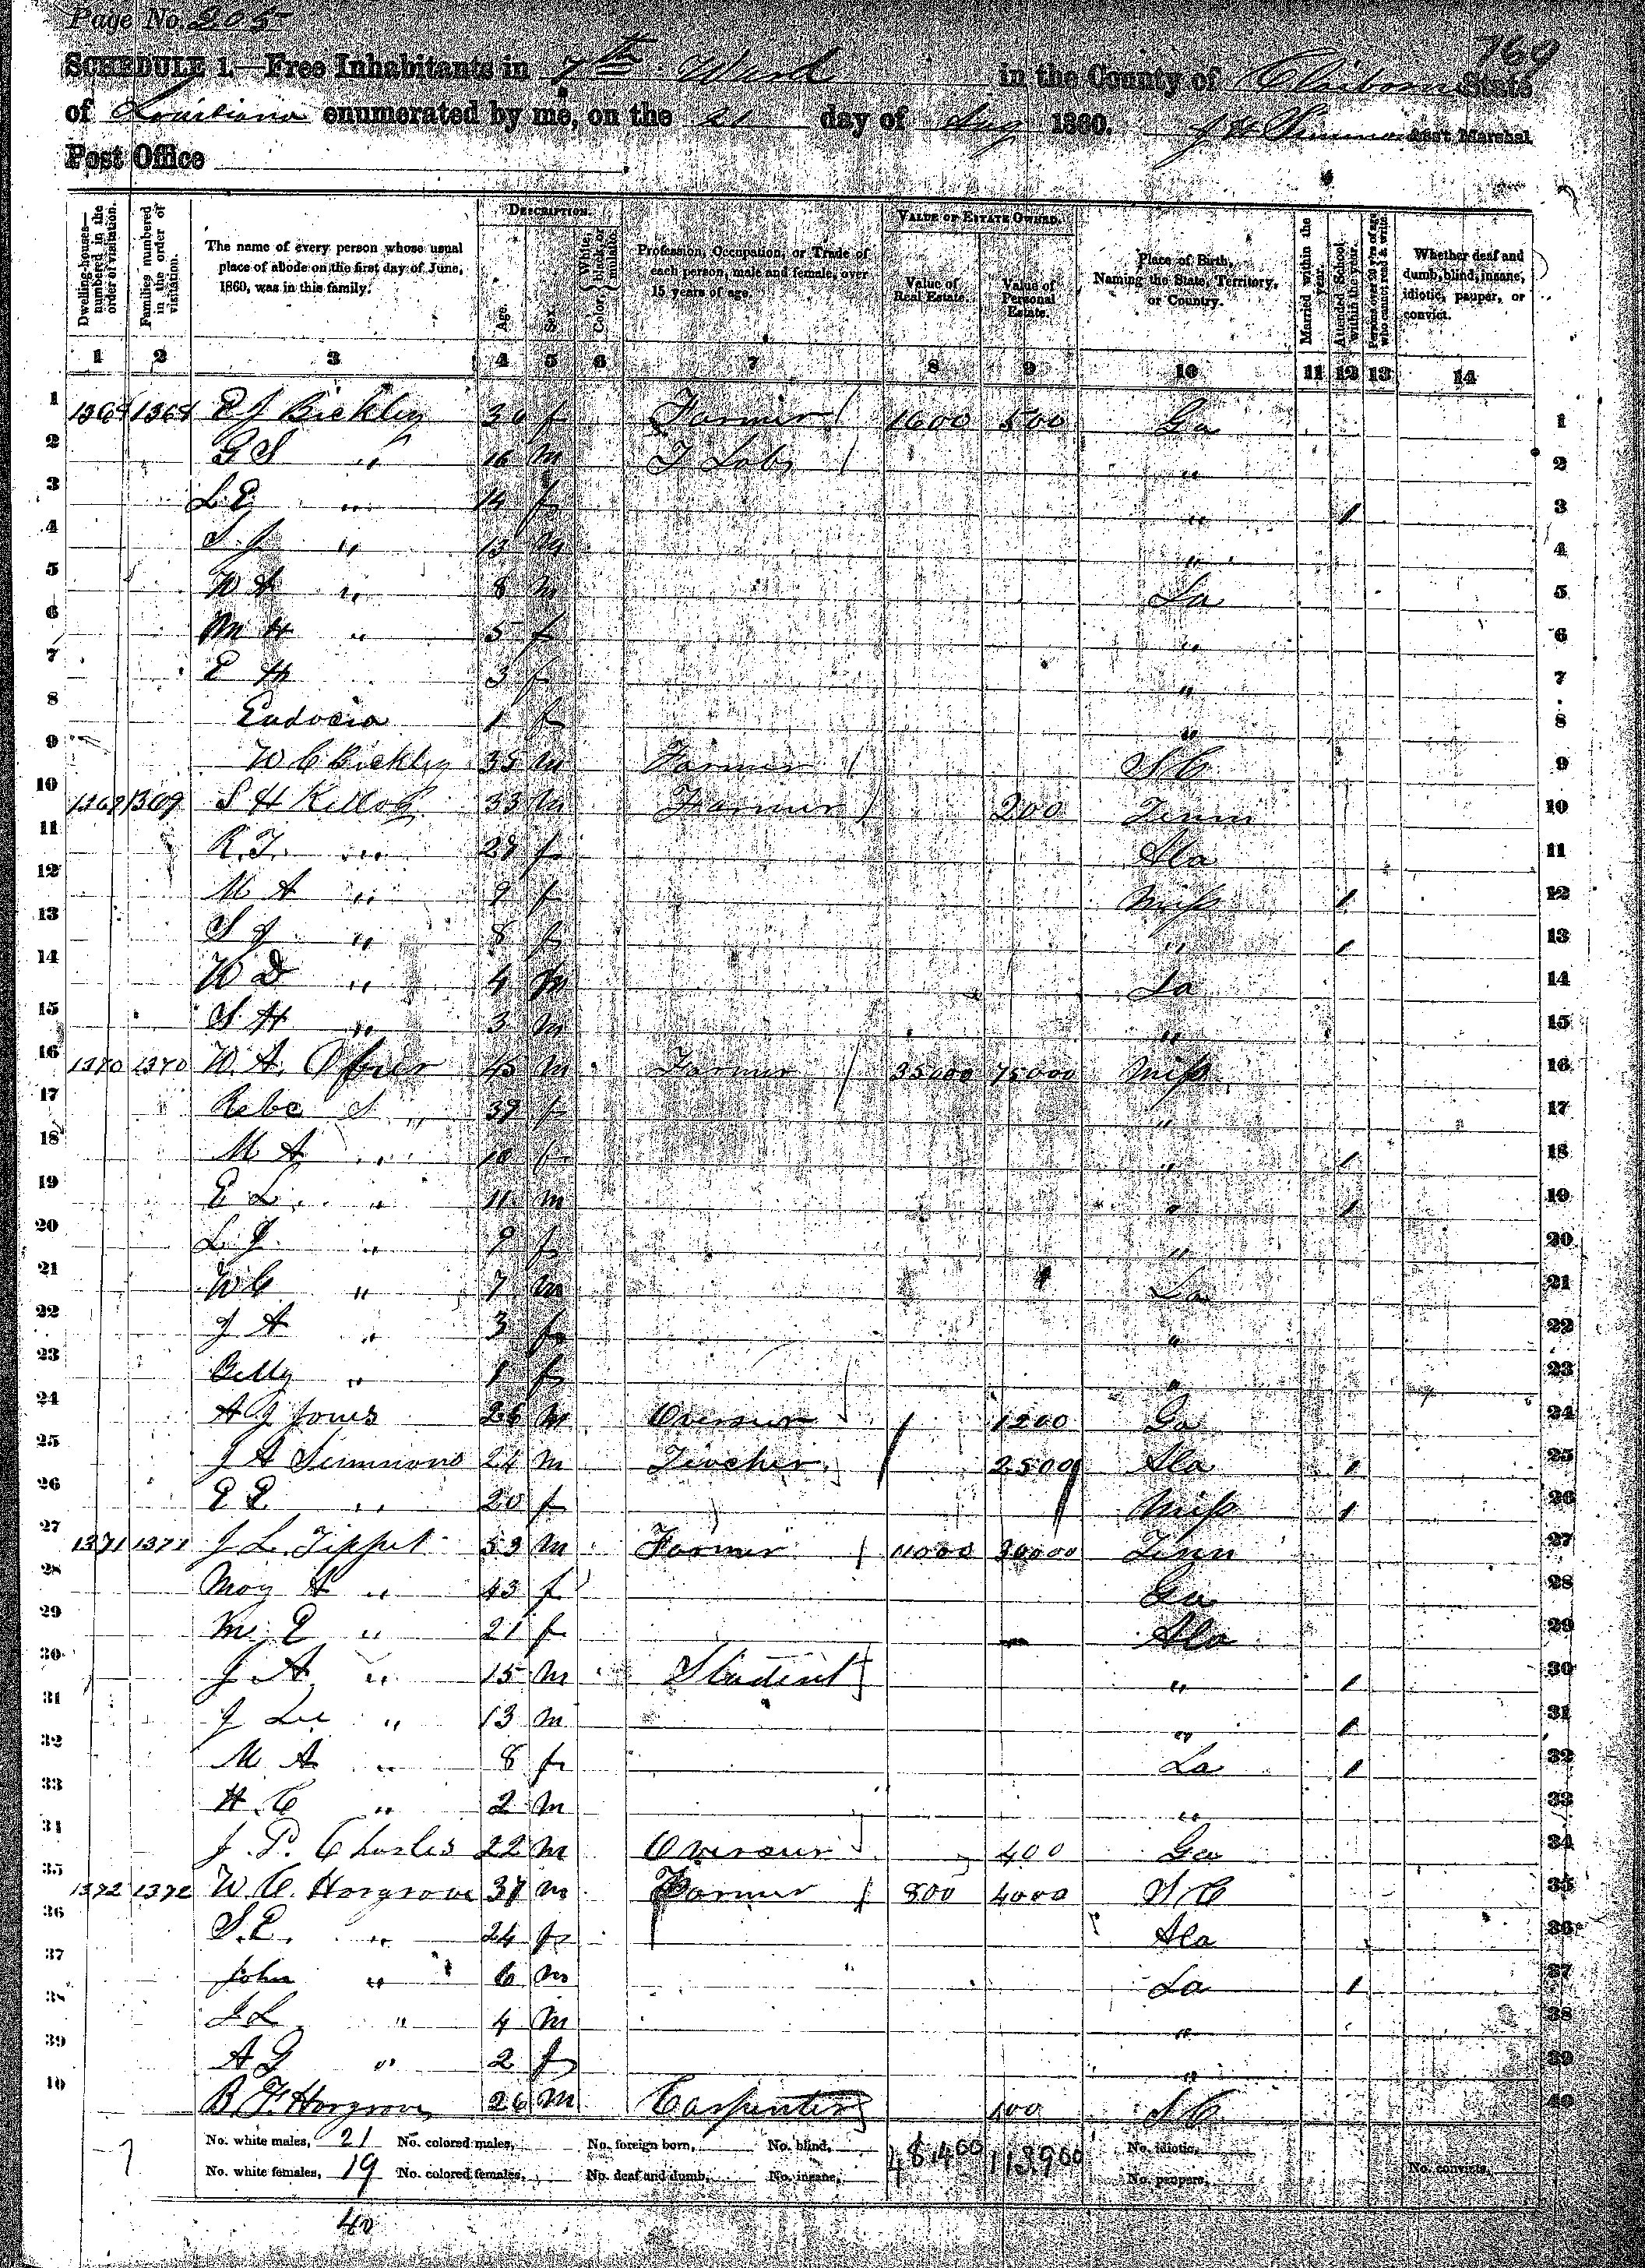 Page No. 205
769
SCHEDULE 1.—Free Inhabitants in 7th Ward in the County of Claiborne State
of Louisiana enumerated by me, on the 21 day of Aug 1860. J H Simmons Ass't Marshal.
Post Office
Dwelling-houses—numbered in the order of visitation.
Families numbered in the order of visitation.
The name of every person whose usual place of abode on the first day of June, 1860, was in this family.
DESCRIPTION.
Age.
Sex.
Color, White, black, or mulatto.
Profession, Occupation, or Trade of each person, male and female, over 15 years of age.
VALUE OF ESTATE OWNED.
Value of Real Estate.
Value of Personal Estate.
Place of Birth, Naming the State, Territory, or Country.
Married within the year.
Attended School within the year.
Persons over 20 years of age who cannot read & write.
Whether deaf and dumb, blind, insane, idiotic, pauper, or convict.
1 2 3 4 5 6 7 8 9 10 11 12 13 14
1 1368 1368 E J Bickley 30 f Farmer / 1600 500 Ga 1
2 G S " 16 m F Lab / " 2
3 L E " 14 f " / 3
4 S J " 13 m " 4
5 W A " 8 m La 5
6 M H " 5 f " 6
7 E H 3 f " 7
8 Eudocia 1 f " 8
9 W C Bickley 35 m Farmer / S C 9
10 1369 1369 S H Kellog 33 m Farmer / 200 Tenn 10
11 R. T. " 28 f Ala 11
12 M A " 9 f Miss / 12
13 S J " 8 f " / 13
14 W D " 4 m La 14
15 S H " 3 m " 15
16 1370 1370 W. A. 45 m Farmer / 35000 75000 Miss 16
17 Rebc S " 39 f " 17
18 M A " 10 f " / 18
19 E L. " 11 m " / 19
20 L J " 9 f " 20
21 W C " 7 m La 21
22 J A " 3 f " 22
23 Betty " 1 f " 23
24 A J Jones 26 m Overseer / 1200 Ga 24
25 J A Simmons 24 m Teacher / 2500 Ala / 25
26 E E " 20 f Miss / 26
27 1371 1371 J L Tippet 53 m Farmer / 11000 30000 Tenn 27
28 May A " 43 f Ga 28
29 M. E " 21 f Ala 29
30 J A " 15 m Student " / 30
31 J Lee " 13 m " / 31
32 M A " 8 f La / 32
33 H. C " 2 m " 33
34 J. P. Charles 22 m Overseer 400 Ga 34
35 1372 1372 W. C. Horgrove 37 m Farmer / 800 4000 S C 35
36 S. E. " 24 f Ala 36
37 John " 6 m La / 37
38 J L " 4 m " 38
39 A J " 2 f " 39
40 B. F. Horgrove 26 m Carpenter 100 S C 40
No. white males, 21 No. colored males, No. foreign born, No. blind, 48400 113900 No. idiotic,
No. white females, 19 No. colored females, No. deaf and dumb, No. insane, No. paupers, No. convicts,
40